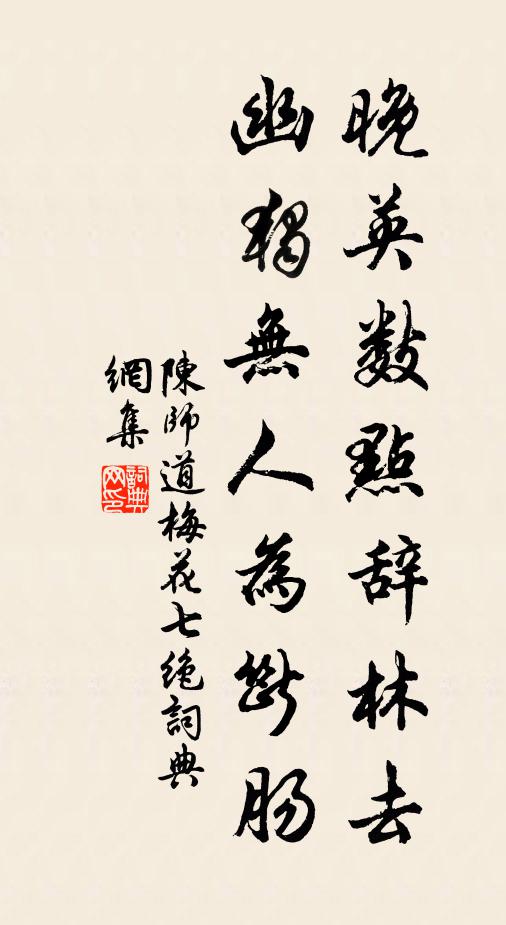 晚英数點辞林去
幽獨無人為斷腸
陳師道梅花七绝詞典
網集
詞典
网印